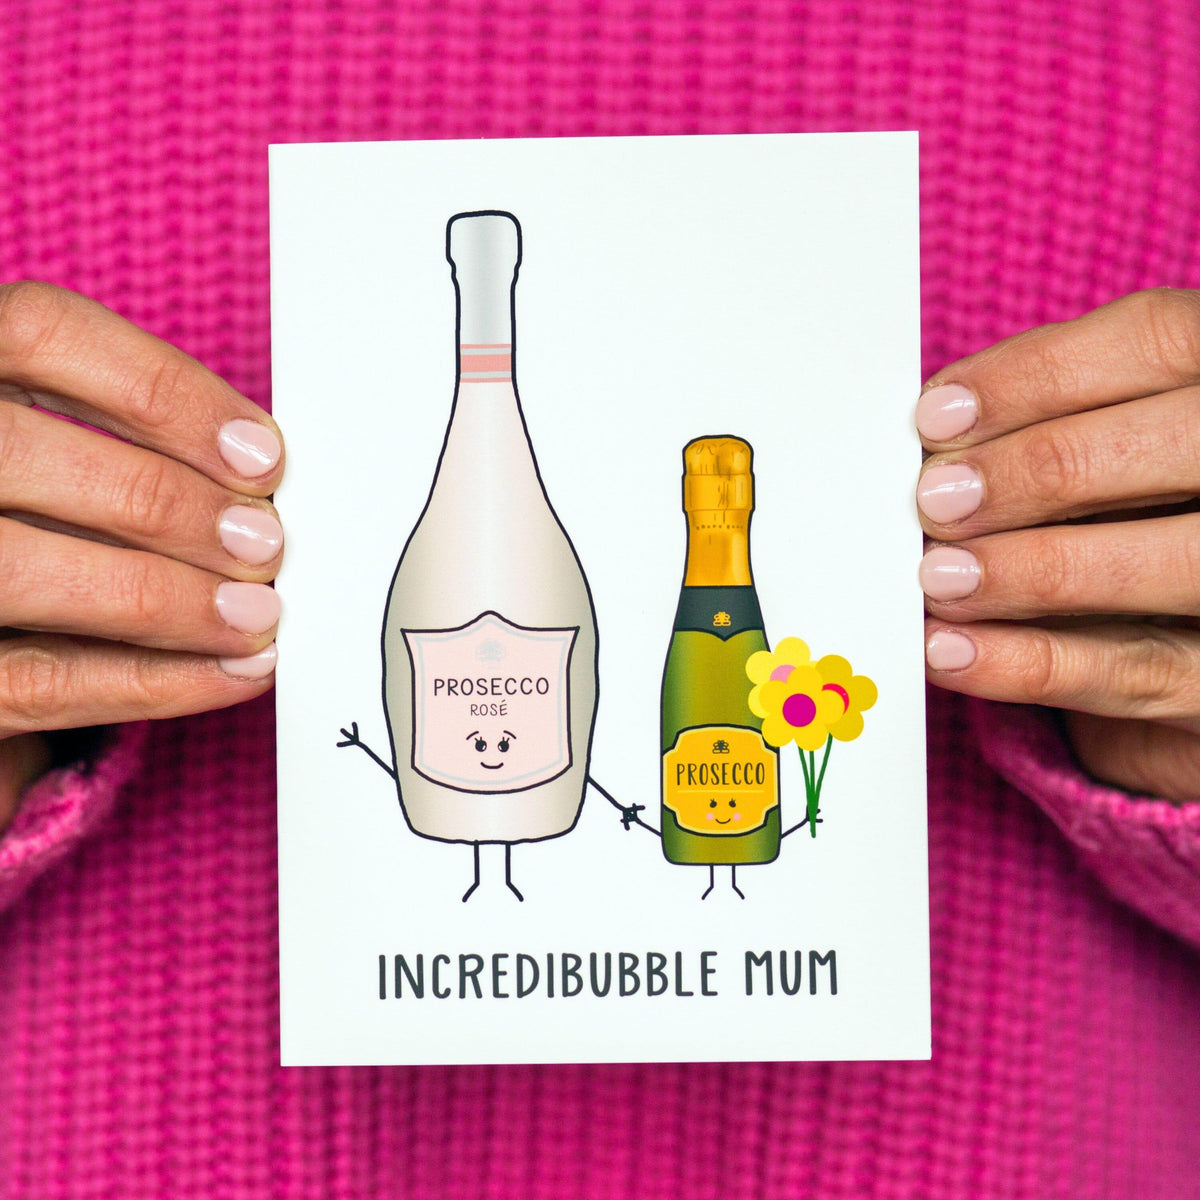 PROSECCO
ROSÉ
PROSECCO
INCREDIBUBBLE MUM